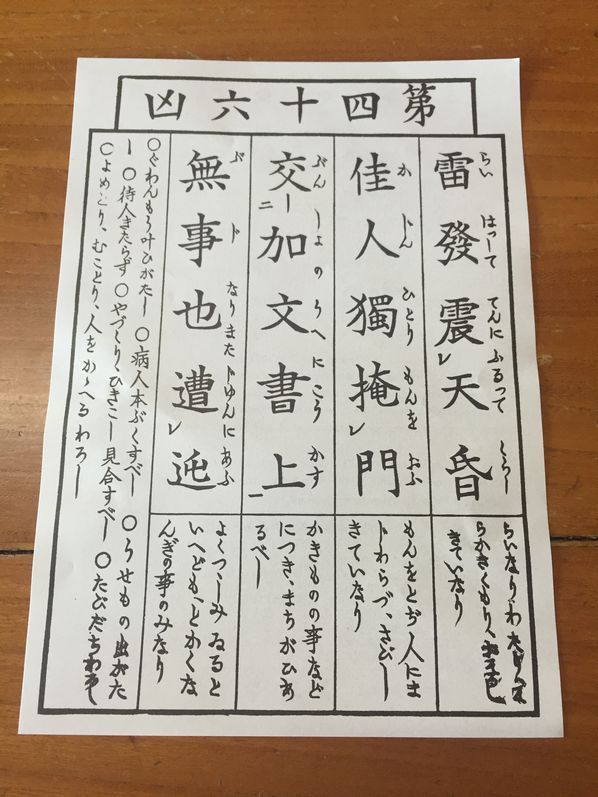 第四十六凶
雷發震レ天昏
らい はつして てんに ふるつて くらし
らいなり、わ
らかきくもり、
きていなり
佳人獨掩レ門
か じん ひとり もんを おふ
もんをとぢ人にま
じわらづ、さびし
きていなり
交二加文書上一
ぶん しよ の うへ に こう かす
かきものの事など
につき、まちがひあ
るべし
無事也遭レ迍
ぶ じ なり また じゆんに あふ
よくつゝしみゐると
いへども、とかくな
んぎの事のみなり
○ぐわんもう叶ひがたし ○病人本ぶくすべし ○うせもの出がた
し ○待人きたらず ○やづくり、ひきこし見合すべし ○たびだちわろし
○よめとり、むことり、人をかゝへるわろし